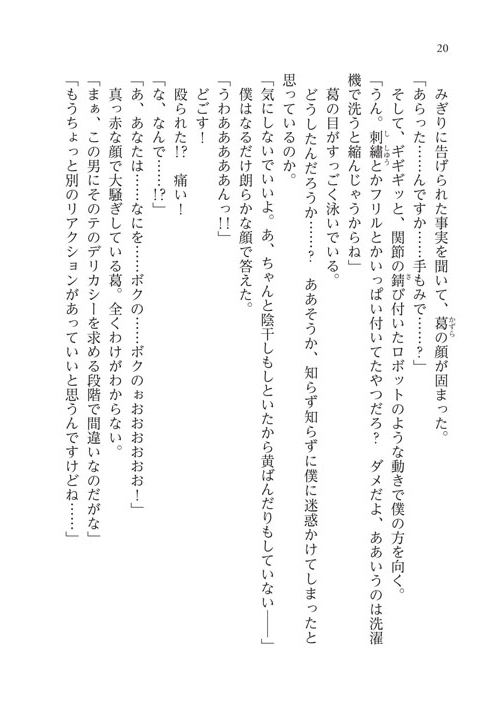 20
みぎりに告げられた事実を聞いて、葛の顔が固まった。
かずら
「あらった……んですか……手もみで……？」
そして、ギギギッと、関節の錆び付いたロボットのような動きで僕の方を向く。
さ
「うん。刺繡とかフリルとかいっぱい付いてたやつだろ？　ダメだよ、ああいうのは洗濯
ししゅう
機で洗うと縮んじゃうからね」
葛の目がすっごく泳いでいる。
どうしたんだろうか……？　ああそうか、知らず知らずに僕に迷惑かけてしまったと
思っているのか。
「気にしないでいいよ。あ、ちゃんと陰干しもしといたから黄ばんだりもしていない――」
僕はなるだけ朗らかな顔で答えた。
「うわああああああんっ!!」
どごす！
殴られた!?　痛い！
「な、なんで……!?」
「あ、あなたは……なにを……ボクの……ボクのぉおおおおおお！」
真っ赤な顔で大騒ぎしている葛。全くわけがわからない。
「まぁ、この男にそのテのデリカシーを求める段階で間違いなのだがな」
「もうちょっと別のリアクションがあっていいと思うんですけどね……」